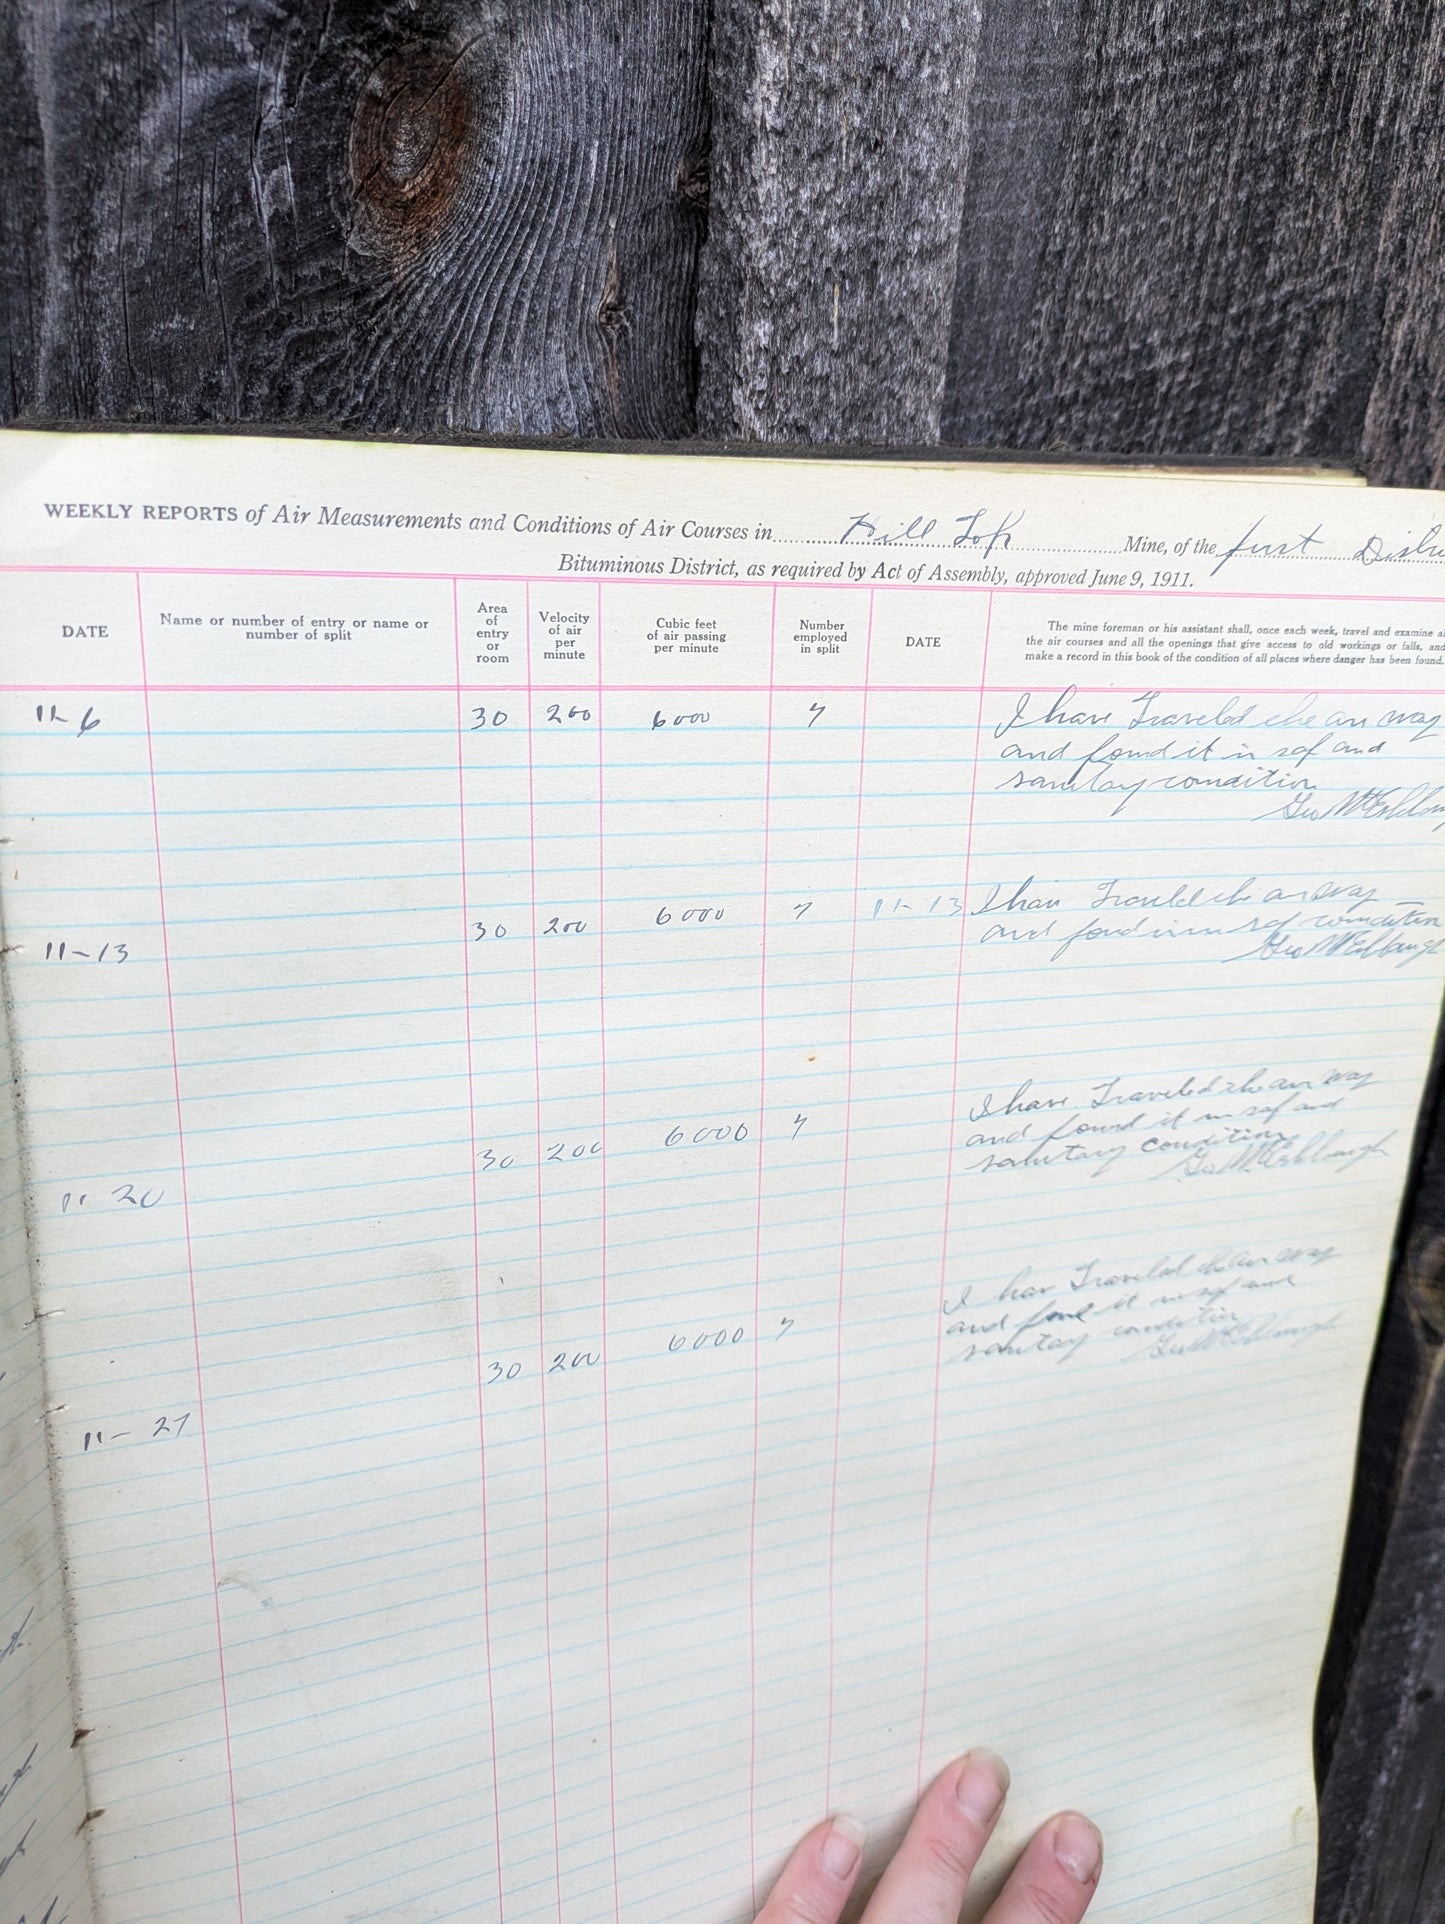 WEEKLY REPORTS of Air Measurements and Conditions of Air Courses in Hill Top Mine, of the first Distri
Bituminous District, as required by Act of Assembly, approved June 9, 1911.
DATE
Name or number of entry or name or
number of split
Area
of
entry
or
room
Velocity
of air
per
minute
Cubic feet
of air passing
per minute
Number
employed
in split
DATE
The mine foreman or his assistant shall, once each week, travel and examine al
the air courses and all the openings that give access to old workings or falls, and
make a record in this book of the condition of all places where danger has been found.
11-6 30 200 6000 7 I have Traveled the air way
and found it in saf and
sanitay condition
Geo
11-13 30 200 6000 7 11-13 I hav Traveled the air way
and fond in saf condition
Geo
11 20 30 200 6000 7 I have Traveled the air way
and found it in saf and
sanitary condition
Geo
11-27 30 200 6000 7 I hav Traveled the air way
and fond it in saf and
sanitay condition
Geo